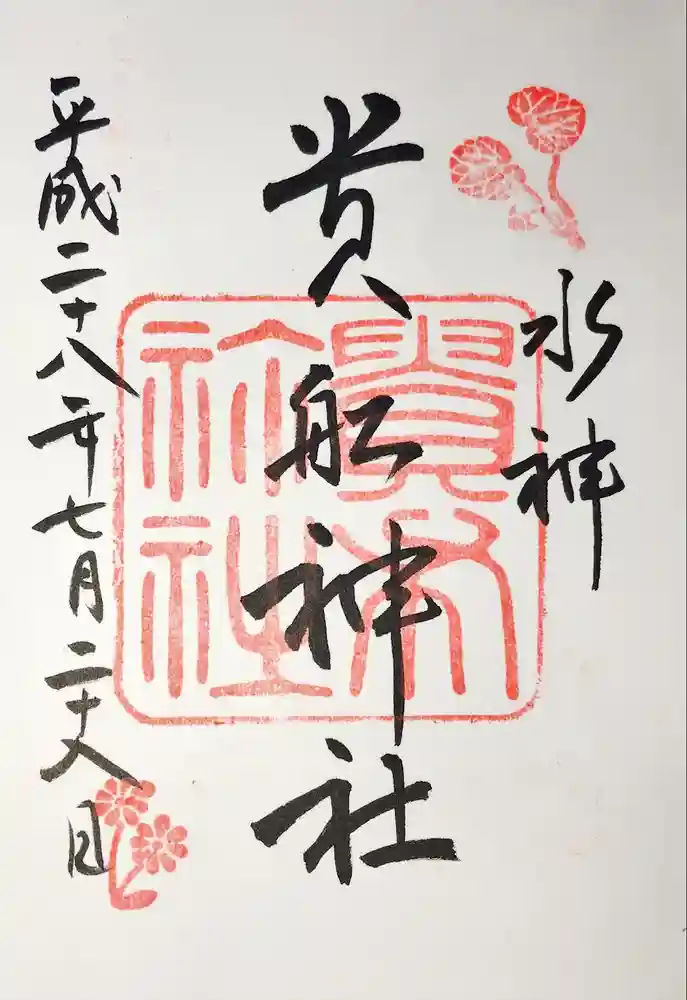 水神
貴船神社
平成二十八年七月二十八日
貴布
祢社